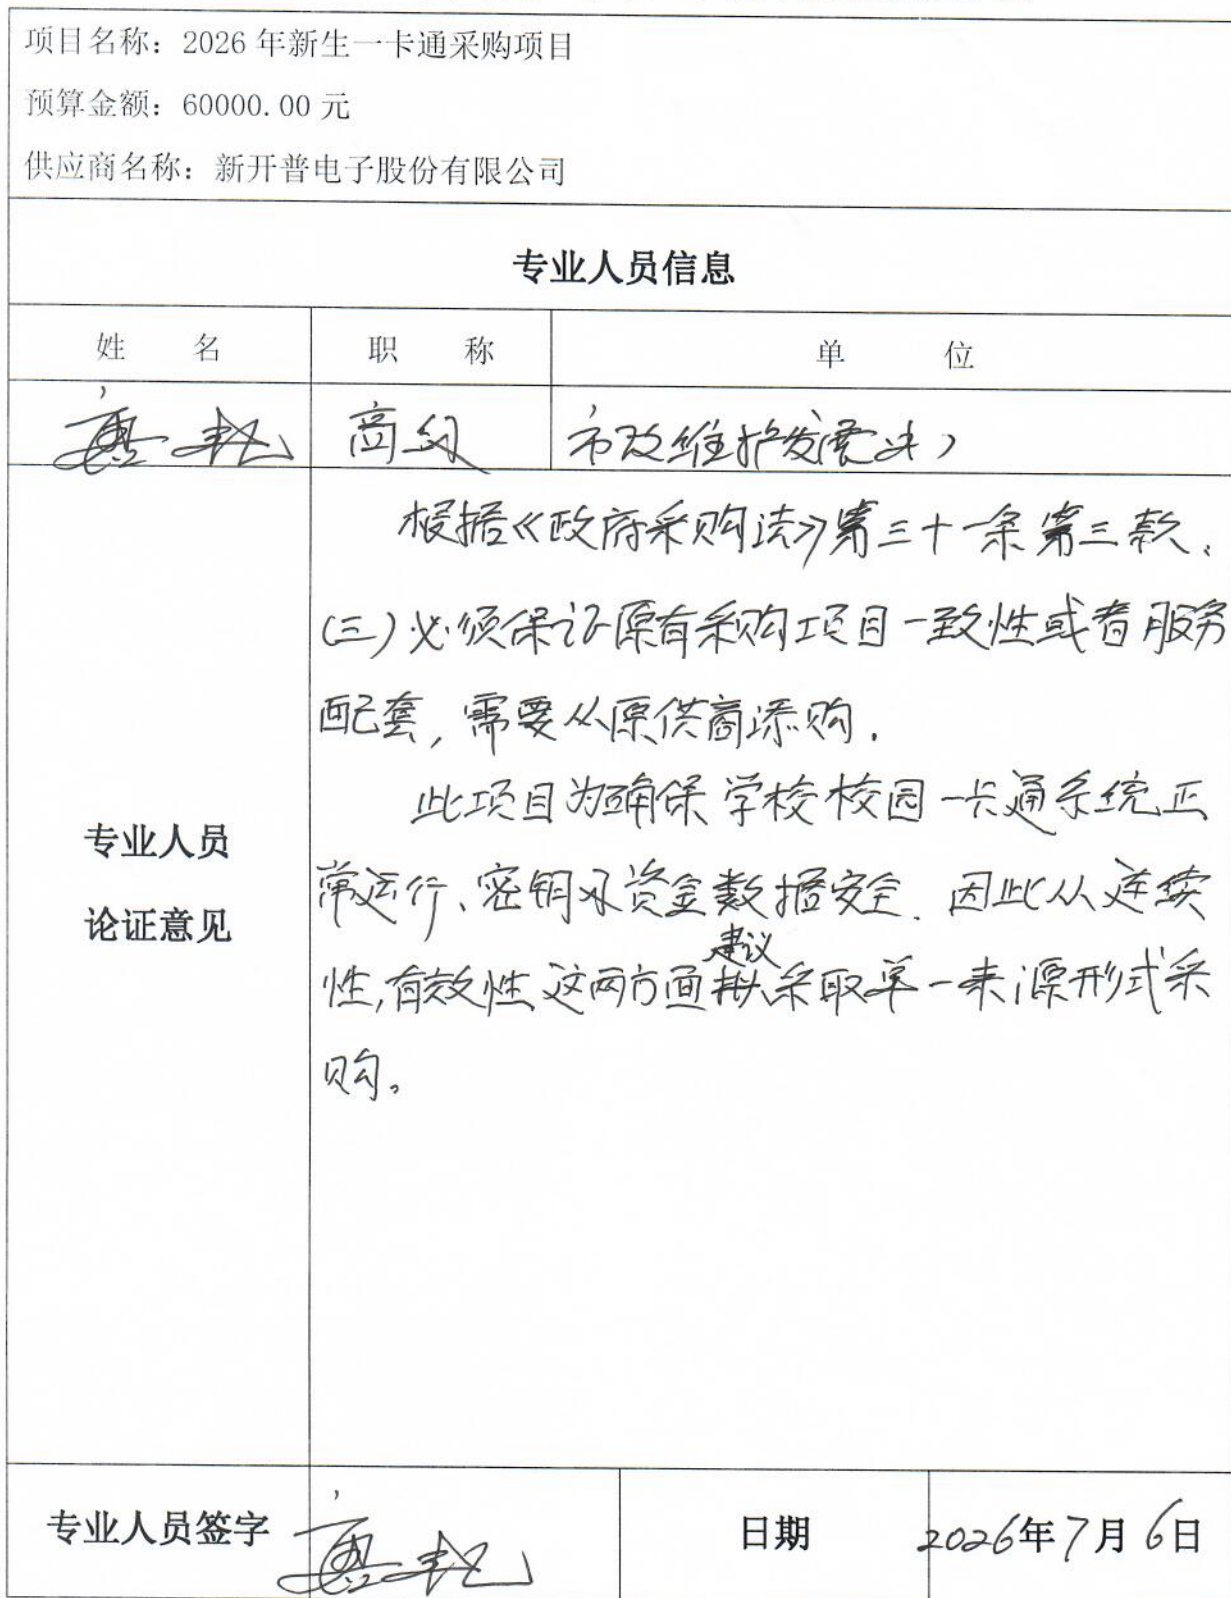 项目名称：2026 年新生一卡通采购项目
预算金额：60000.00 元
供应商名称：新开普电子股份有限公司
专业人员信息
姓 名 职 称 单 位
市政维护发展中心
根据《政府采购法》第三十一条第三款、
(三)必须保证原有采购项目一致性或者服务
配套，需要从原供商添购.
专业人员
论证意见
此项目为确保学校校园一卡通系统正
常运行、密钥及资金数据安全. 因此从连续
建议
性,有效性这两方面采取单一来源形式采
购。
专业人员签字
日期 2026年7月6日